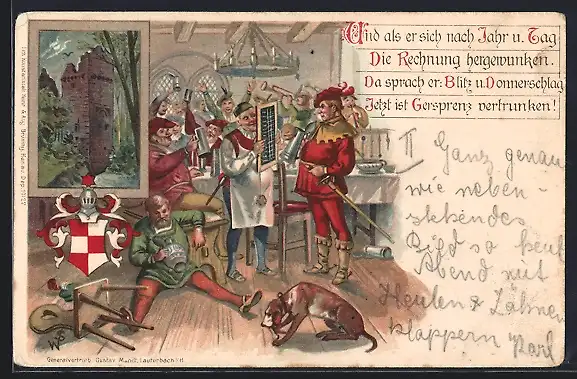 Und als er sich nach Jahr u. Tag
Die Rechnung hergewunken.
Da sprach er: Blitz u. Donnerschlag
Jetzt ist Gersprenz vertrunken!
II
Ganz genau
wie neben-
stehendes
Bild so heut
Abend mit
Heulen & Zähne
klappern Karl
WP
Generalvertrieb Gustav Mandt, Lauterbach